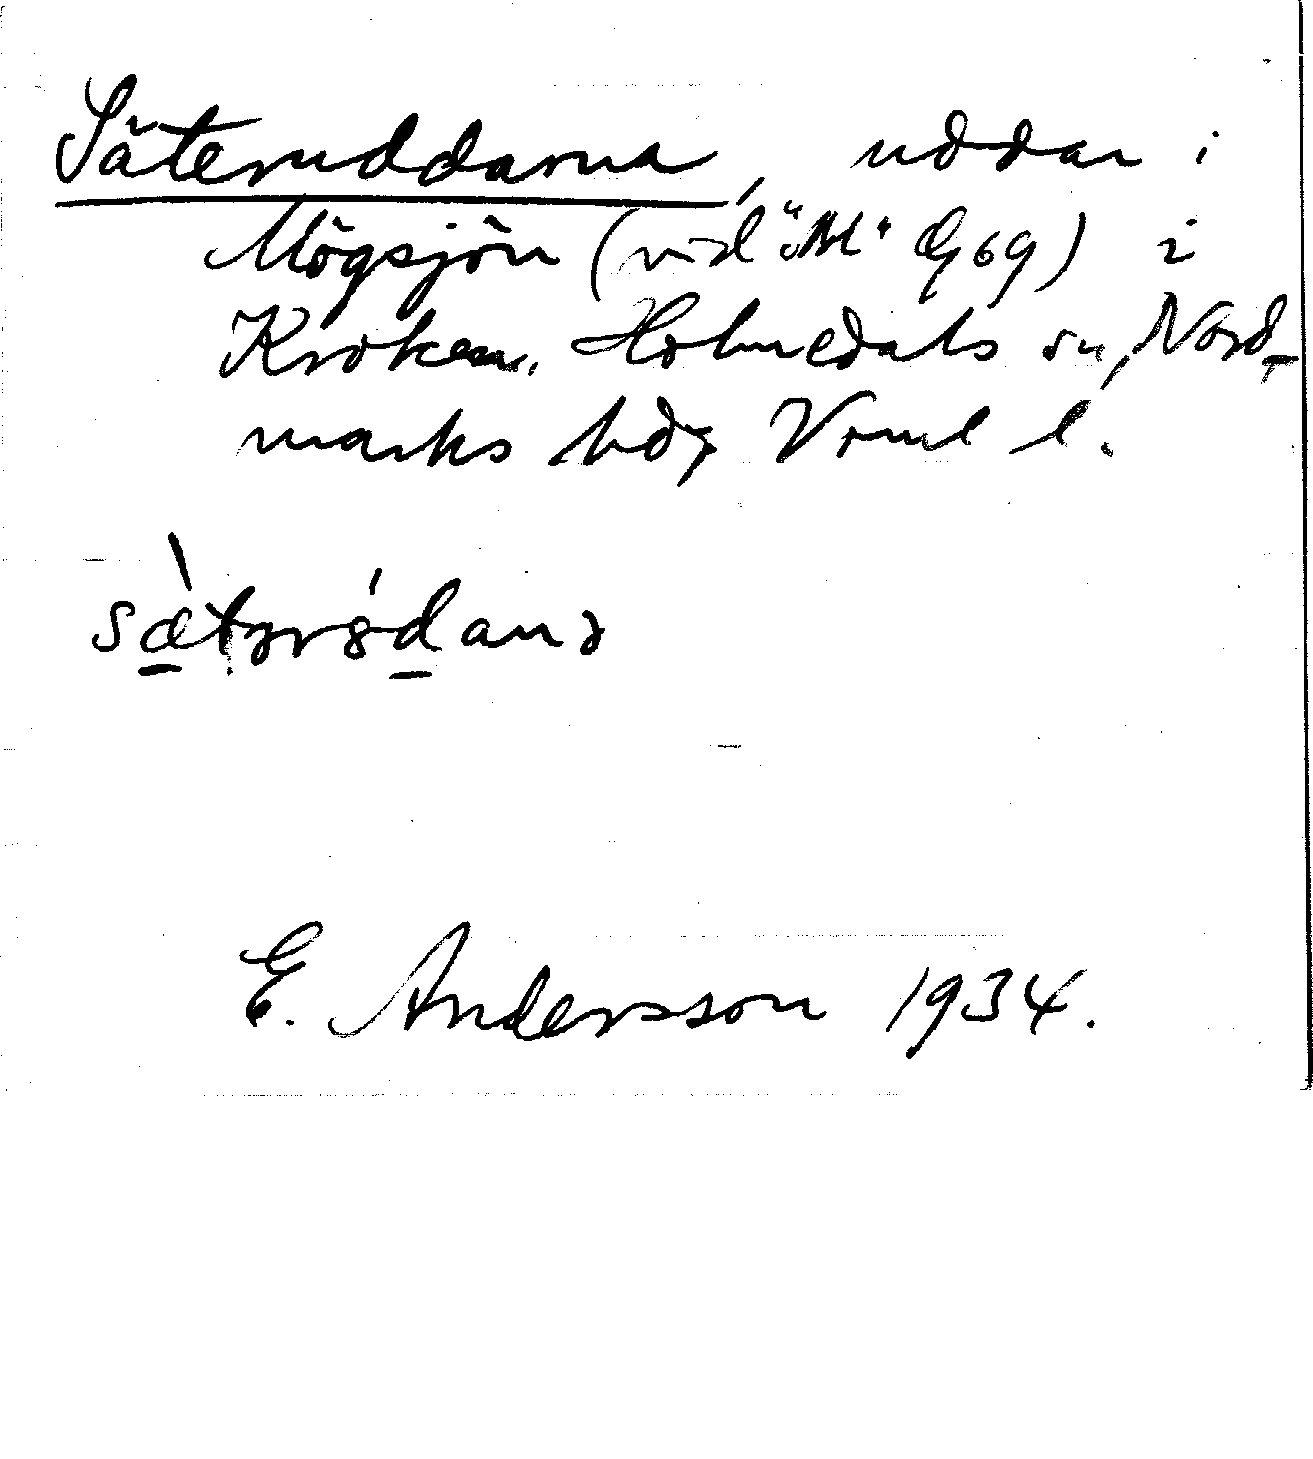 Säteruddarna, uddar i
Mögsjön (vid "M" G69) i
Kroken, Holmedals sn, Nord-
marks hd, Vrml l.
sætərɞdanə
E. Andersson 1934.